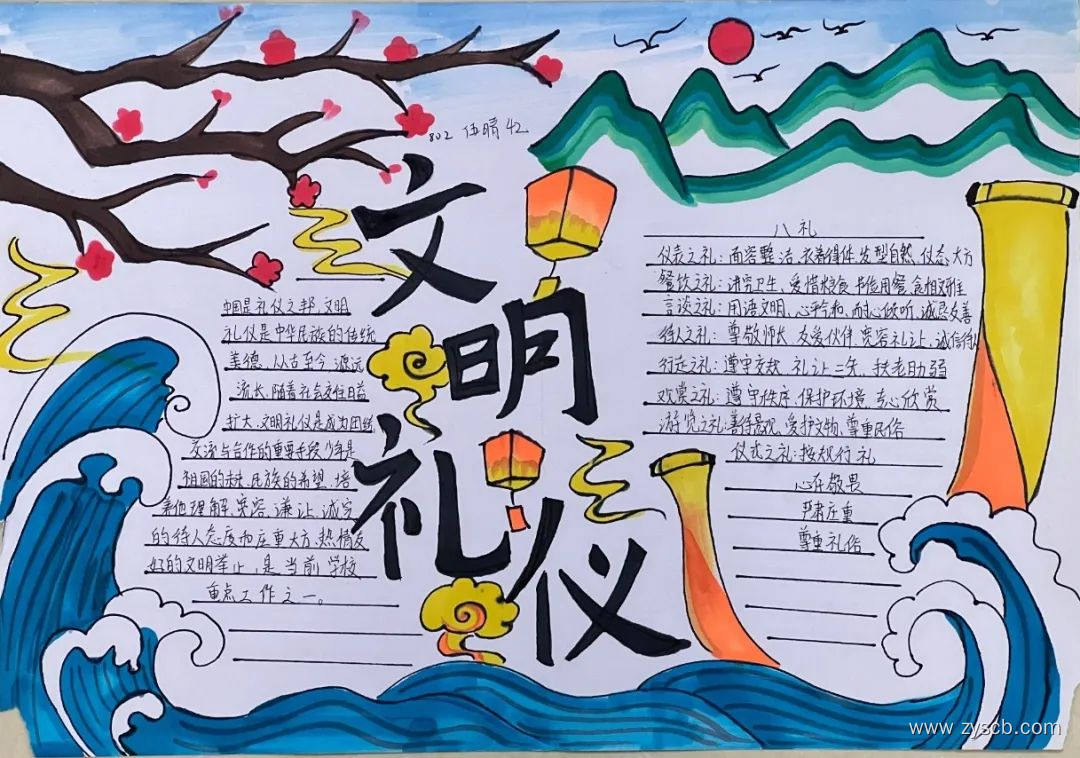 802 伍晴
文明礼仪
中国是礼仪之邦,文明
礼仪是中华民族的传统
美德,从古至今,源远
流长,随着社会交往日益
扩大,文明礼仪是成为团结
交流与合作的重要手段,少年是
祖国的未来,民族的希望,培
养他理解、宽容、谦让、诚实
的待人态度和庄重大方,热情友
好的文明举止,是当前学校
重点工作之一。
八礼
仪表之礼:面容整洁、衣着得体、发型自然、仪态大方
餐饮之礼:讲究卫生、爱惜粮食、节俭用餐、食相文雅
言谈之礼:用语文明、心平气和、耐心倾听、诚恳友善
待人之礼:尊敬师长、友爱伙伴、宽容礼让、诚信待人
行走之礼:遵守交规、礼让三先、扶老助弱
观赏之礼:遵守秩序、保护环境、专心欣赏
游览之礼:善待景观、爱护文物、尊重民俗
仪式之礼:按规行礼
心存敬畏
严肃庄重
尊重礼俗
www.zyscb.com